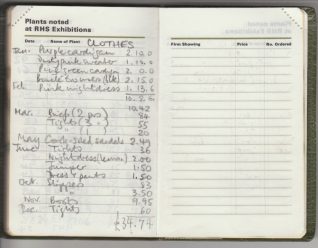 Plants noted
at RHS Exhibitions
Date Name of Plant CLOTHES
Jan. Purple cardigan 2.10.0
sweater
cardigan 2.0.0
2.15.0
Feb. Pink nightdress 1.13.6
Mar. Briefs (2 prs) 84
Tights (3 ") 55
" (1 ) 20
May Cord-soled sandals 2.49
June Tights 36
Nightdress (lemon) 2.00
Jumper 1.50
Dress + pants 1.50
Oct. Slippers 83
" 3.50
Nov. Boots 9.95
Dec. Tights 60
£34.74
First Showing Price No. Ordered